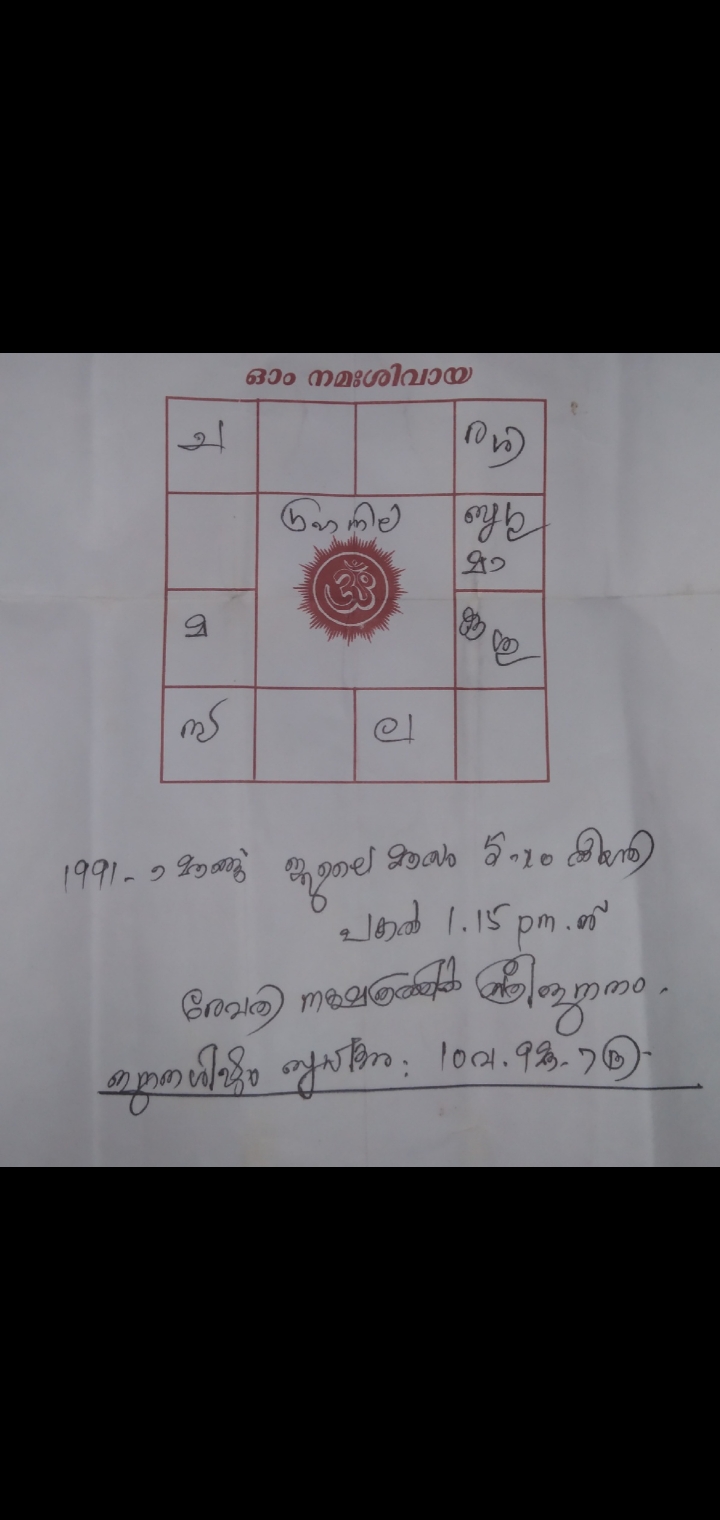 ഓം നമഃശിവായ
ച
ര ശി
ഗ്രഹനില
ബു ഗു
മാ
മ
കു ശു
സ
ല
1991-ാ മാണ്ടു ജൂലൈ മാസം 5-ാം തിയതി
പകൽ 1.15 pm.ന്
രേവതി നക്ഷത്രത്തിൽ സ്ത്രീ ജനനം.
ജനനശിഷ്ടം ബുധദശ: 10വ. 9മാ. 7